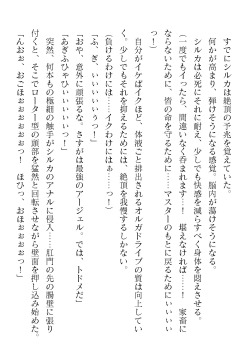 すでにシルカは絶頂の予兆を覚えていた。
何かが高まり、弾けそうになる感覚。脳内が蕩けそうになる。
シルカは必死にそれに耐え、少しでも快感を減らすべく身体を悶えさせる。
(一度でもイったら、間違いなく呑まれます…！　堪えなければ……！　家畜に
ならないために、皆の命を守るために……マスターのもとに戻るためにぃぃぃぃ
っ！)
自分がイケばイクほど、体液ごと排出されるオルガドライブの質は向上してい
く。少しでもそれを抑えるためには、絶頂を我慢するしかない。
(負けるわけには……イクわけにはぁ……っ！)
「ふ、ぎ、ぃぃぃぃぃうっ！」
「おや、意外に頑張るな。さすがは最強のアージェル。では、トドメだ」
「あぎふひゃひぃぃぃぃいっ！」
突然、何本もの極細の触手がシルカのアナルに侵入……肛門の先の腸壁に張り
付くと、そこでローター型の頭部を猛然と回転させながら壁面を押し込み始めた。
「んおぉ、おごほぉぉぉぉぉっ！　ほひっ、おほぉぉぉぉっ！」